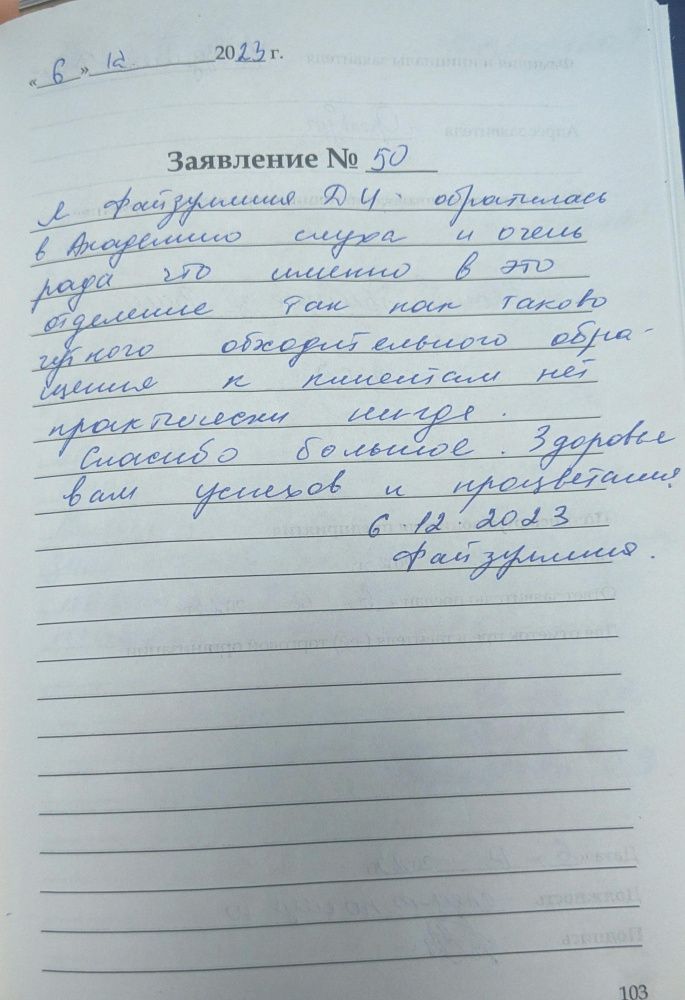 «6» 12 2023 г.
Заявление № 50
Я Файзуллина Д И обратилась
в Академию слуха и очень
рада что именно в это
отделение так как таково
чуткого обходительного обра-
щения к клиентам нет
практически нигде.
Спасибо большое. Здоровье
вам успехов и процветания
6 12 2023
Файзуллина.
103